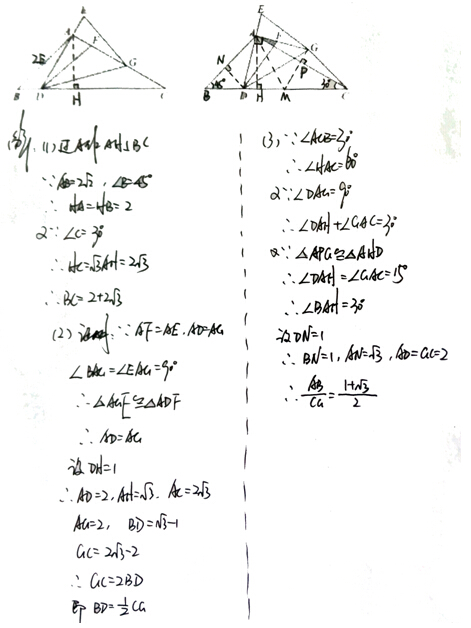 E
A
F
2√2
G
B
D
H
C
E
A
F
G
N
P
B
45°
D
H
M
30°
C
(1) 过A作AH⊥BC
∵AB=2√2,∠B=45°
∴HA=HB=2
又∵∠C=30°
∴HC=√3AH=2√3
∴BC=2+2√3
(2)
∵AF=AE,AD=AG
∠BAG=∠EAG=90°
∴△AGE≌△ADF
∴AD=AG
设DH=1
∴AD=2,AH=√3,AC=2√3
AG=2, BD=√3-1
GC=2√3-2
∴GC=2BD
即BD=½CG
(3)∵∠ACB=30°
∴∠HAC=60°
又∵∠DAG=90°
∴∠DAH+∠GAC=30°
又∵△APG≌△AHD
∴∠DAH=∠GAC=15°
∴∠BAH=30°
设DN=1
∴BN=1,AN=√3,AD=GC=2
∴AB/CG=(1+√3)/2